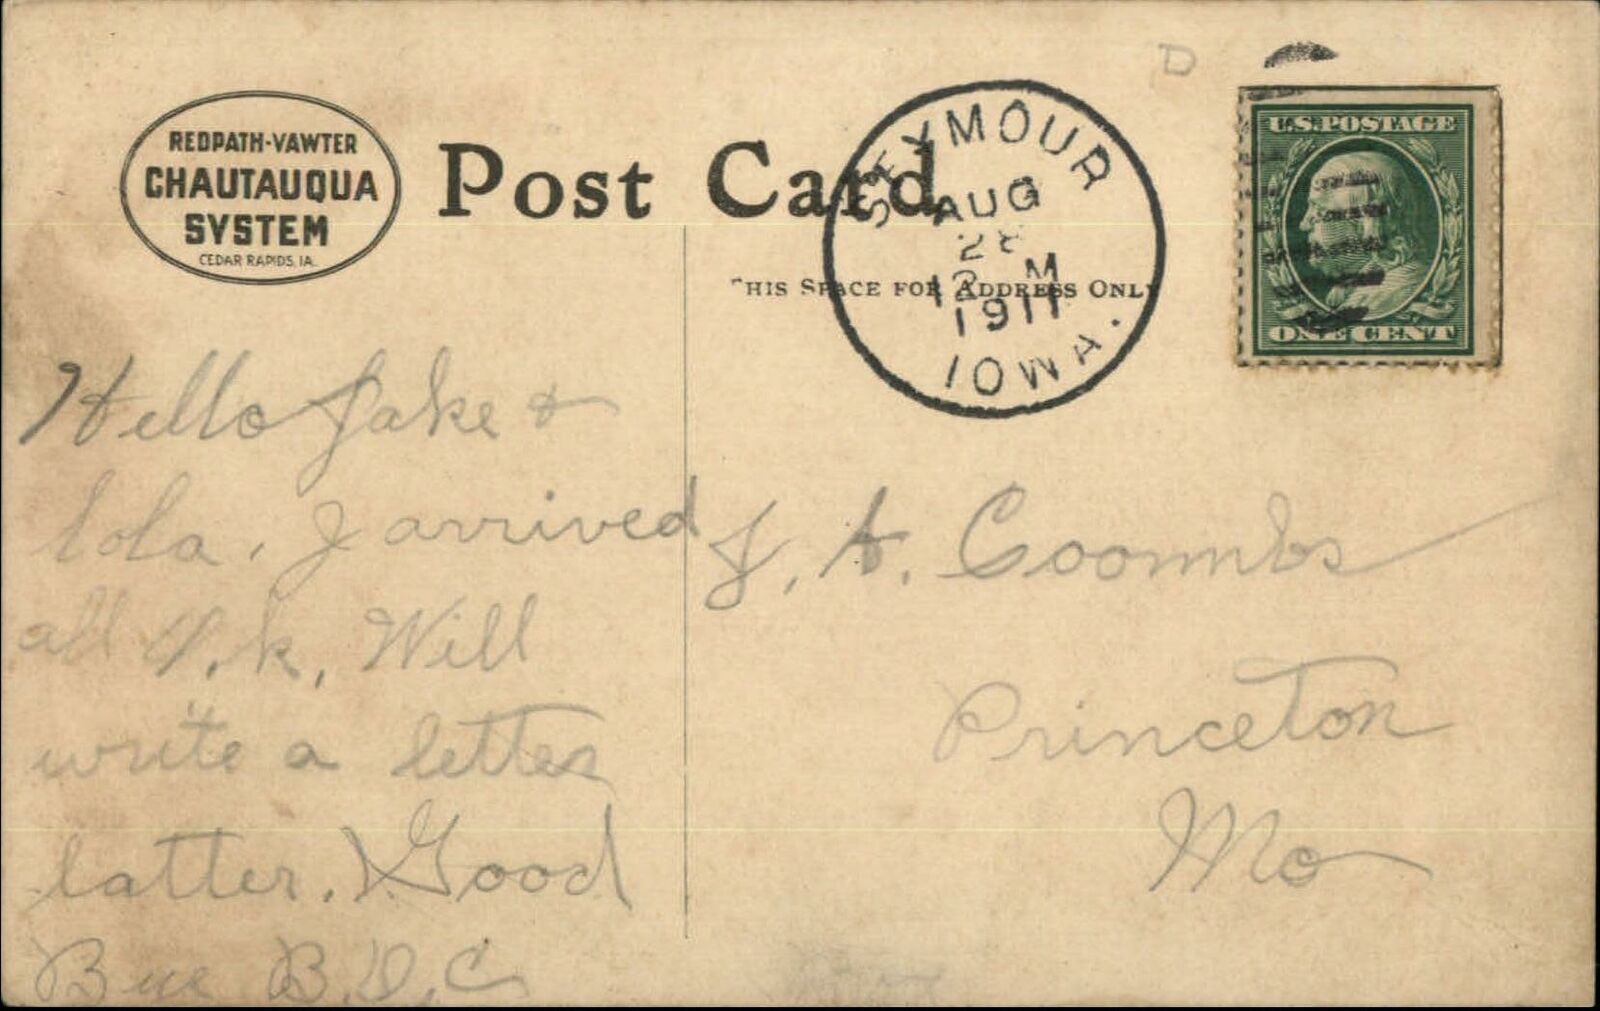 REDPATH-VAWTER
CHAUTAUQUA
SYSTEM
CEDAR RAPIDS, IA.
Post Card
THIS SPACE FOR ADDRESS ONLY
SEYMOUR
AUG
28
12 M
1911
IOWA.
D
U.S. POSTAGE
ONE CENT
Hello Jake &
Lola. I arrived
all O.k. Will
write a letter
latter. Good
Bye B.D.C
J. A. Coombs
Princeton
Mo